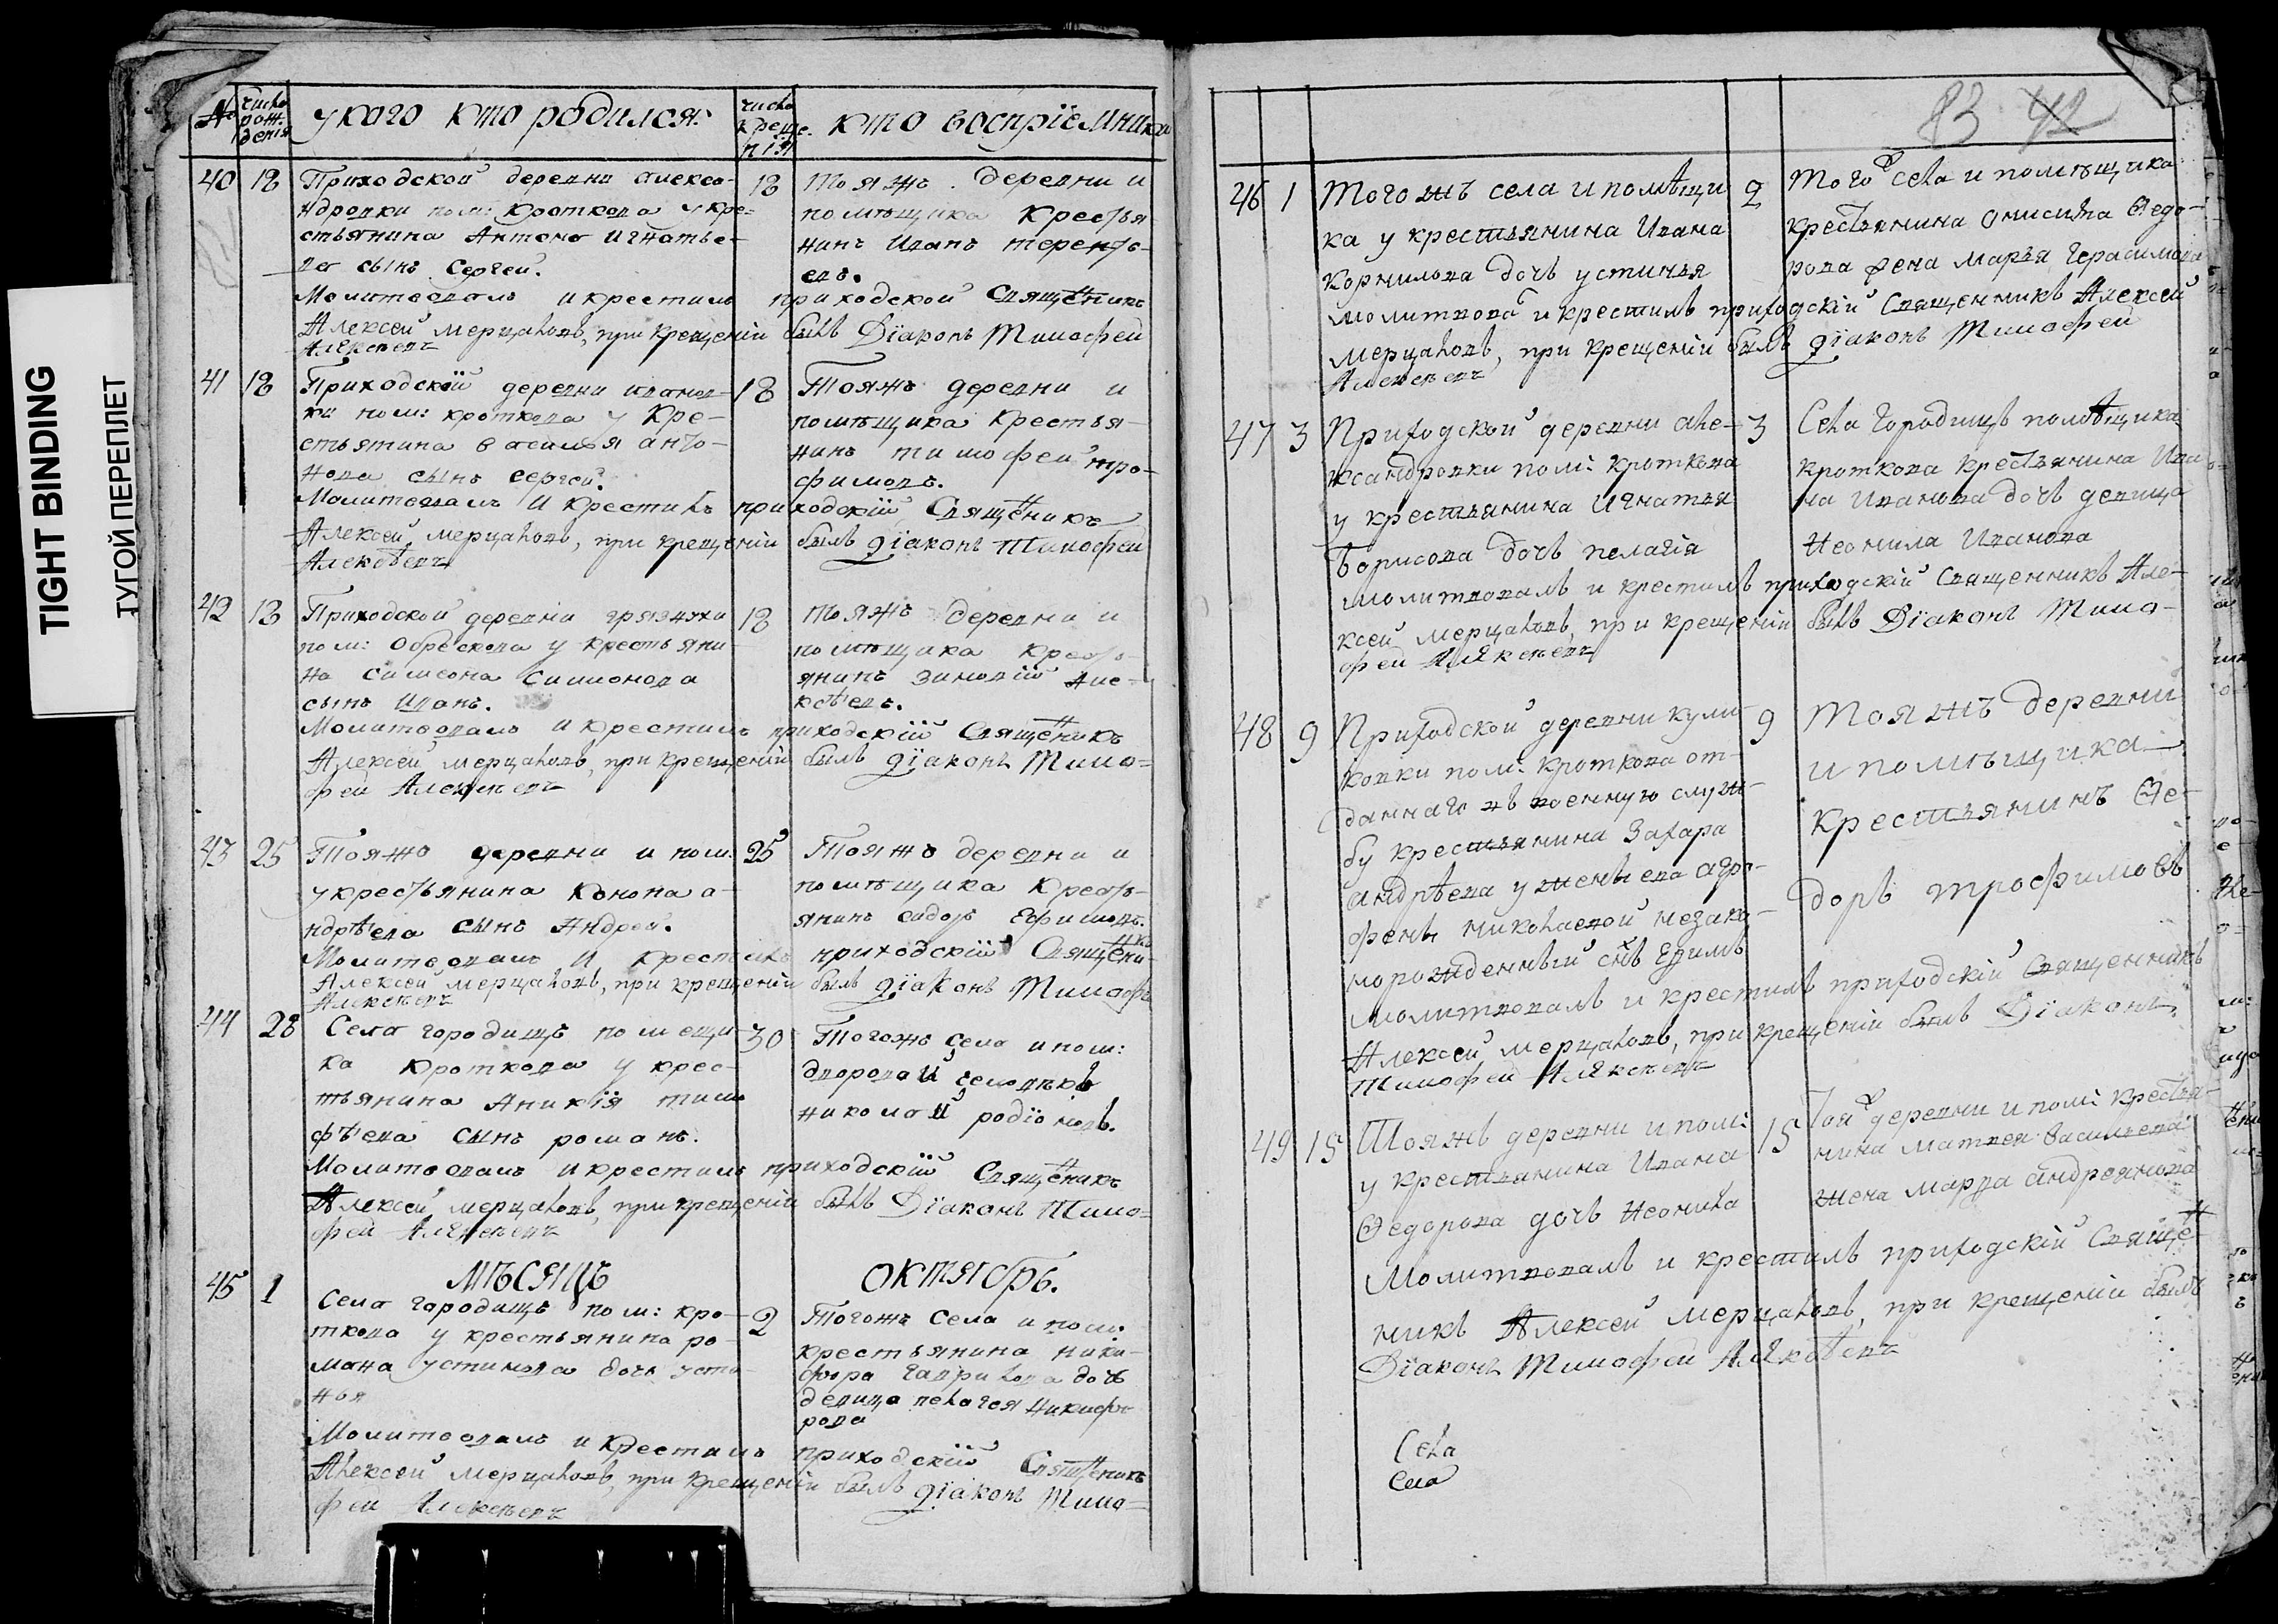 TIGHT BINDING
ТУГОЙ ПЕРЕПЛЕТ
№
число рож: денія
у кого кто родился:
число креще: нія
кто воспріемники
40 18 Приходской деревни алекса-
ндровки пом: кроткова у кре-
стьянина Антона Игнатье-
ва сынъ Сергей.
18 тояжъ деревни и
помѣщика крестья
нинъ Иванъ теренть-
евъ.
Молитвовалъ и крестилъ приходской Священникъ
Алексей мерцаловъ, при крещеніи былъ Діаконъ Тимофей
Алексѣевъ
41 18 Приходскій деревни иванов-
ки пом: кроткова у кре-
стьянина василья анто-
нова сынъ сергей.
18 Тояжъ деревни и
помѣщика крестья-
нинъ тимофей тро-
фимовъ.
Молитвовалъ и крестилъ приходскій Священикъ
Алексей мерцаловъ, при крещеніи былъ діаконъ Тимофей
Алексѣевъ
42 18 Приходской деревни грязнухи
пом: Обрескова у крестьяни-
на симеона Симионова
сынъ Иванъ.
18 тояжъ деревни и
помѣщика кресть-
янинъ зиновій Але-
ксѣевъ.
Молитвовалъ и крестилъ приходскій Священикъ
Алексей мерцаловъ, при крещеніи былъ діаконъ Тимо-
фей Алексѣевъ
43 25 Тояжъ деревни и пом:
у крестьянина Конона а-
ндрѣева сынъ Андрей.
25 Тояжъ деревни и
помѣщика кресть-
янинъ сидоръ Ефимовъ.
Молитвовалъ и крестилъ приходскій Священикъ
Алексей мерцаловъ, при крещеніи былъ діаконъ Тимофей
Алексѣевъ
44 28 Села городищъ помещи
ка кроткова у крес-
тьянина Аникія тимо
фѣева сынъ романъ.
30 Тогожъ села и пом:
дворовай человѣкъ
николай родіоновъ.
Молитвовалъ и крестилъ приходскій Священикъ
Алексей мерцаловъ, при крещеніи былъ Діаконъ Тимо-
фей Алексѣевъ
мѣсяцъ октябръ.
45 1 Села городищъ пом: кро-
ткова у крестьянина ро-
мана устинова дочь усти-
нья
2 Тогожъ села и пом:
крестьянина ники-
фора гаврилова дочь
девица пелагея Никифо-
рова
Молитвовалъ и крестилъ приходскій Священикъ
Алексей мерцаловъ, при крещеніи былъ діаконъ Тимо-
фей Алексѣевъ
83 42
46 1 Тогожъ села и помѣщи
ка у крестьянина Ивана
корнильва дочь устинья
2 Того ж села и помѣщика
крестьянина Онисима Ѳедо-
рова жена марья герасимова
молитвовал и крестилъ приходскій Священникъ Алексей
мерцаловъ, при крещеніи былъ діаконъ Тимофей
Алексѣевъ
47 3 Приходской деревни але-
ксандровки пом: кроткова
у крестьянина Игнатья
Борисова дочь пелагія
3 Села Городищъ помѣщика
кроткова крестьянина Ива
на Иванова дочь девица
Неонила Иванова
молитвовалъ и крестилъ приходскій Священникъ Але-
ксей мерцаловъ, при крещеніи былъ Діаконъ Тимо-
фей Алексѣевъ
48 9 Приходской деревни кули-
ковки пом: кроткова от-
даннаго въ военную служ-
бу крестьянина Захара
андрѣева у жены ева агро-
фены николаевой незако-
норожденный снъ Ефимъ
9 Тояжъ деревни
и помѣщика
крестьянинъ Ѳе-
доръ трофимовъ
молитвовалъ и крестилъ приходскій Священникъ
Алексей мерцаловъ, при крещеніи былъ Діаконъ
Тимофей Алексѣевъ
49 15 Тояжъ деревни и пом:
у крестьянина Ивана
Ѳедорова дочь Неонила
15 Тояж деревни и пом: крестья-
нина матвея васильева
жена марфа андреянова
Молитвовалъ и крестилъ приходскій Священ-
никъ Алексей мерцаловъ, при крещеніи былъ
Діаконъ Тимофей Алексѣевъ
Села
Села